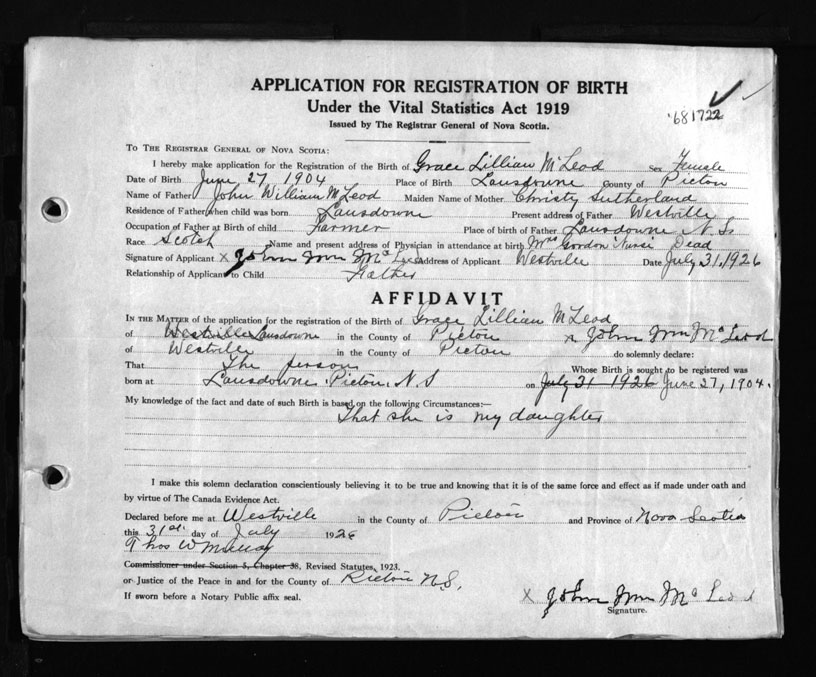 APPLICATION FOR REGISTRATION OF BIRTH
Under the Vital Statistics Act 1919
Issued by The Registrar General of Nova Scotia.
681722
TO THE REGISTRAR GENERAL OF NOVA SCOTIA:
I hereby make application for the Registration of the Birth of Grace Lillian McLeod Sex Female
Date of Birth June 27, 1904 Place of Birth Lansdowne County of Picton
Name of Father John William McLeod Maiden Name of Mother Christy Sutherland
Residence of Father when child was born Lansdowne Present address of Father Westville
Occupation of Father at Birth of child Farmer Place of birth of Father Lansdowne N.S.
Race Scotch Name and present address of Physician in attendance at birth Mrs Gordon Nurse Dead
Signature of Applicant x John Wm McLeod Address of Applicant Westville Date July 31, 1926
Relationship of Applicant to Child Father
AFFIDAVIT
IN THE MATTER of the application for the registration of the Birth of Grace Lillian McLeod
of Westville Lansdowne in the County of Picton x John Wm McLeod
of Westville in the County of Picton do solemnly declare:
That The person Whose Birth is sought to be registered was
born at Lansdowne, Picton, N.S on July 31 1926 June 27, 1904.
My knowledge of the fact and date of such Birth is based on the following Circumstances:—
That she is my daughter
I make this solemn declaration conscientiously believing it to be true and knowing that it is of the same force and effect as if made under oath and
by virtue of The Canada Evidence Act.
Declared before me at Westville in the County of Pictou and Province of Nova Scotia
this 31st. day of July 1926
Thos W
Commissioner under Section 5, Chapter 38, Revised Statutes, 1923.
or Justice of the Peace in and for the County of Pictou N.S.
If sworn before a Notary Public affix seal.
X John Wm McLeod
Signature.